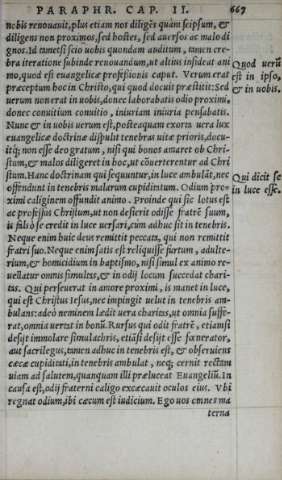 PARAPHR. CAP. II. 667
nobis renouauit, plus etiam nos diligēs quàm seipsum, &
diligens non proximos, sed hostes, sed auersos ac malo di
gnos. Id tametsi scio uobis quondam auditum, tamen cre-
bra iteratione subinde renouandum, ut altius insideat ani
mo, quod est euangelicæ professionis caput. Verum erat
præceptum hoc in Christo, qui quod docuit præstitit: Sed
uerum non erat in uobis, donec laborabatis odio proximi,
donec conuitium conuitio, iniuriam iniuria pensabatis.
Nunc & in uobis uerum est, posteaquam exorta uera lux
euangelicæ doctrinæ dispulit tenebras uitæ prioris, docu-
itq; non esse deo gratum, nisi qui bonos amaret ob Chri-
stum, & malos diligeret in hoc, ut cōuerterentur ad Chri
stum. Hanc doctrinam qui sequuntur, in luce ambulāt, nec
offendunt in tenebris malarum cupiditatum. Odium pro-
ximi caliginem offundit animo. Proinde qui sic lotus est
ac professus Christum, ut non desierit odisse fratrē suum,
is falsò se credit in luce uersari, cum adhuc sit in tenebris.
Neque enim huic deus remittit peccata, qui non remittit
fratri suo. Neque enim satis est reliquisse furtum, adulte-
rium, & homicidium in baptismo, nisi simul ex animo re-
uellatur omnis simultas, & in odij locum succedat charì-
tas. Qui perseuerat in amore proximi, is manet in luce,
qui est Christus Iesus, nec impingit uelut in tenebris am-
bulans: adeò neminem lædit uera charitas, ut omnia suffe-
rat, omnia uertat in bonū. Rursus qui odit fratrē, etiamsi
desijt immolare simulachris, etiāsi desijt esse fœnerator,
aut sacrilegus, tamen adhuc in tenebris est, & obseruiens
cæcæ cupiditati, in tenebris ambulat, neq; cernit rectam
uiam ad salutem, quanquam illi præluceat Euangeliū. In
causa est, odij fraterni caligo excæcauit oculos eius. Vbi
regnat odium, ibi cæcum est iudicium. Ego uos omnes ma
terna
Quod uerū
est in ipso,
& in uobis.
Qui dicit se
in luce esse.